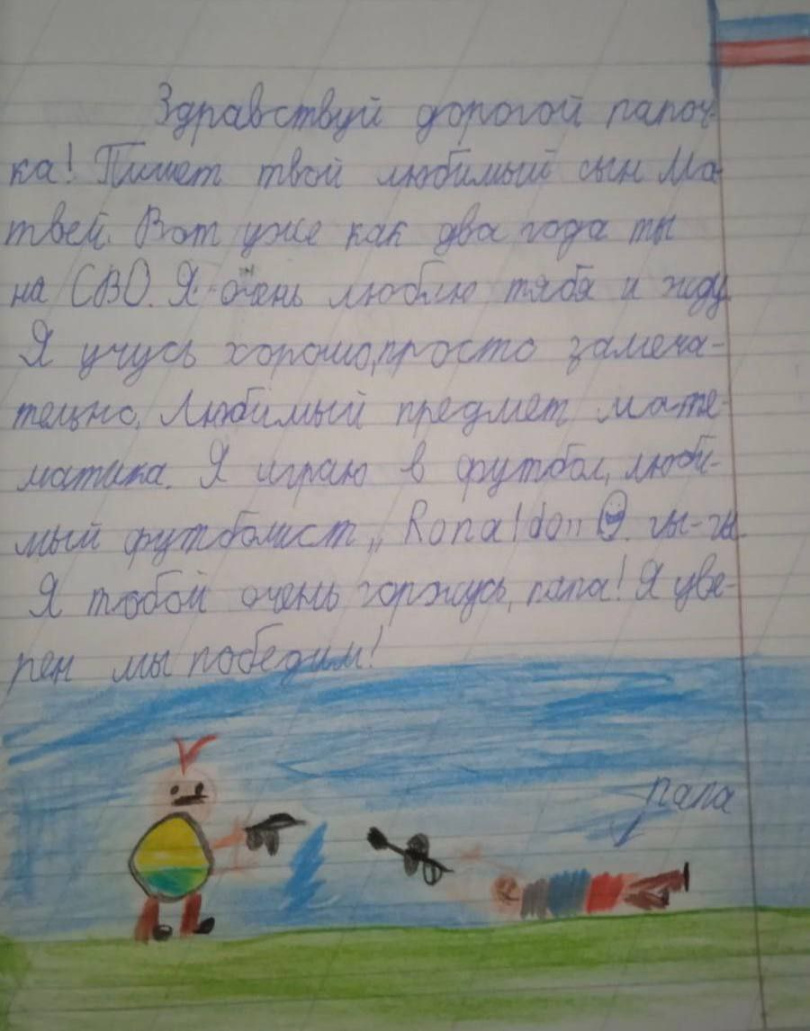 Здравствуй дорогой папоч-
ка! Пишет твой любимый сын Ма-
твей. Вот уже как два года ты
на СВО. Я очень люблю тябя и жду.
Я учусь хорошо,просто замеча-
тельно. Любимый предмет мате-
матика. Я играю в футбол, люби-
мый футболист „Ronaldo" гы-гы.
Я тобой очень горжусь, папа! Я уве-
рен мы победим!
папа